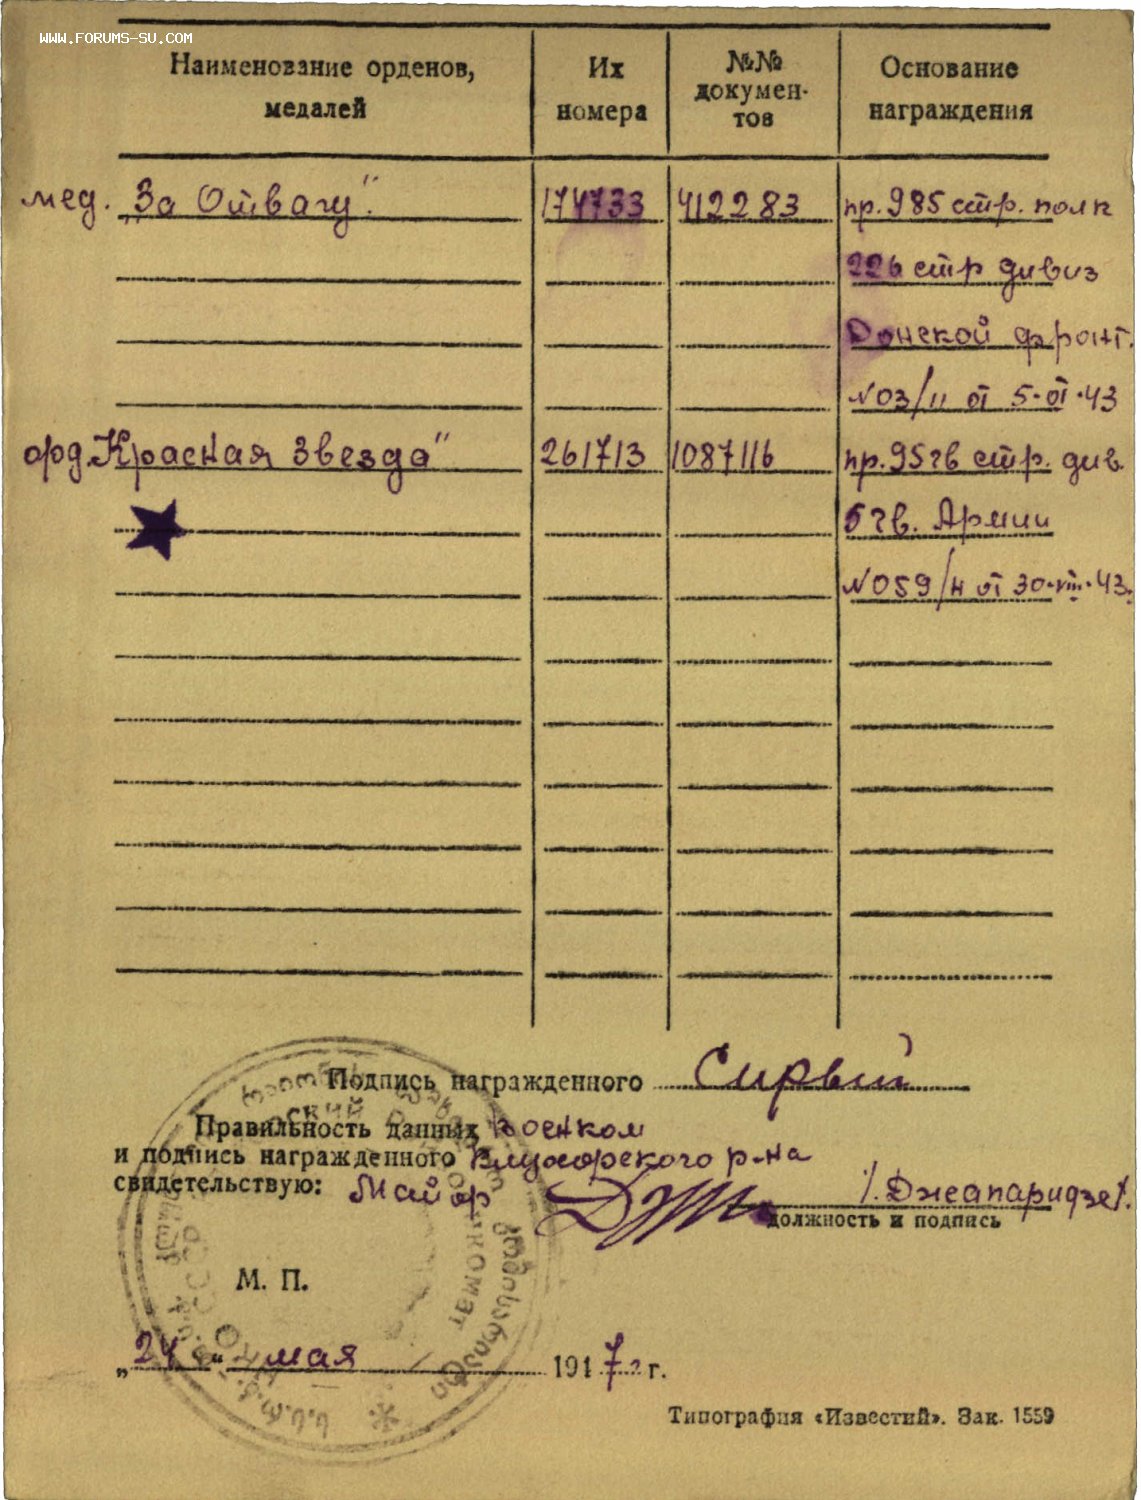 WWW.FORUMS-SU.COM
Наименование орденов, медалей
Их номера
№№ документов
Основание награждения
мед. „За Отвагу".
174733
412283
пр. 985 стр. полк
226 стр дивиз
Донской фронт.
№03/н от 5-VI-43
орд. Красная Звезда"
261713
1087116
пр. 95 гв стр. див.
5 гв. Армии
№059/н от 30-VIII-43.
Подпись награжденного Сирый
Правильность данных Военком
и подпись награжденного Клухорского р-на
свидетельствую: Майор /Джапаридзе/.
должность и подпись
М. П.
„24" мая 1947 г.
Типография «Известий». Зак. 1559